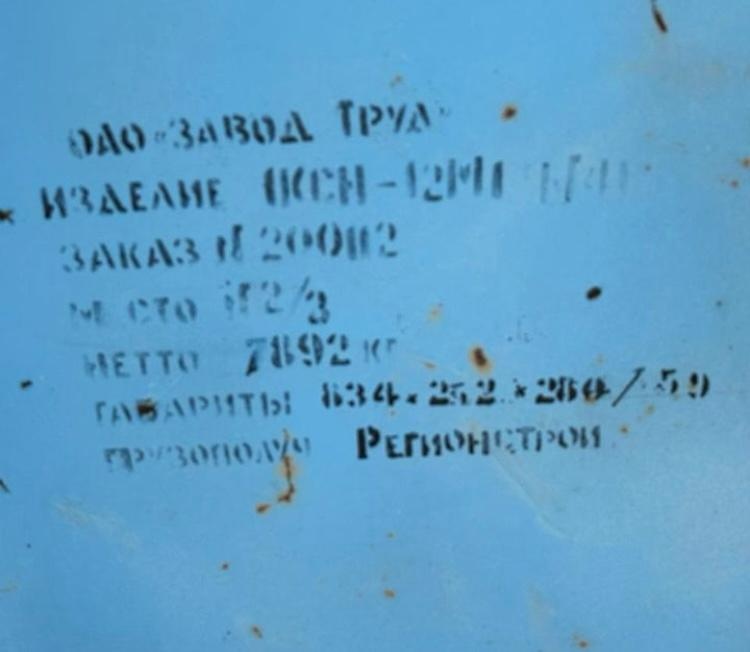 ОАО «ЗАВОД ТРУД»
ИЗДЕЛИЕ
ЗАКАЗ N 200112
МЕСТО N 2/3
НЕТТО 7892 КГ
ГАБАРИТЫ 634×252×284/
ГРУЗОПОЛУЧ РЕГИОНСТРОЙ